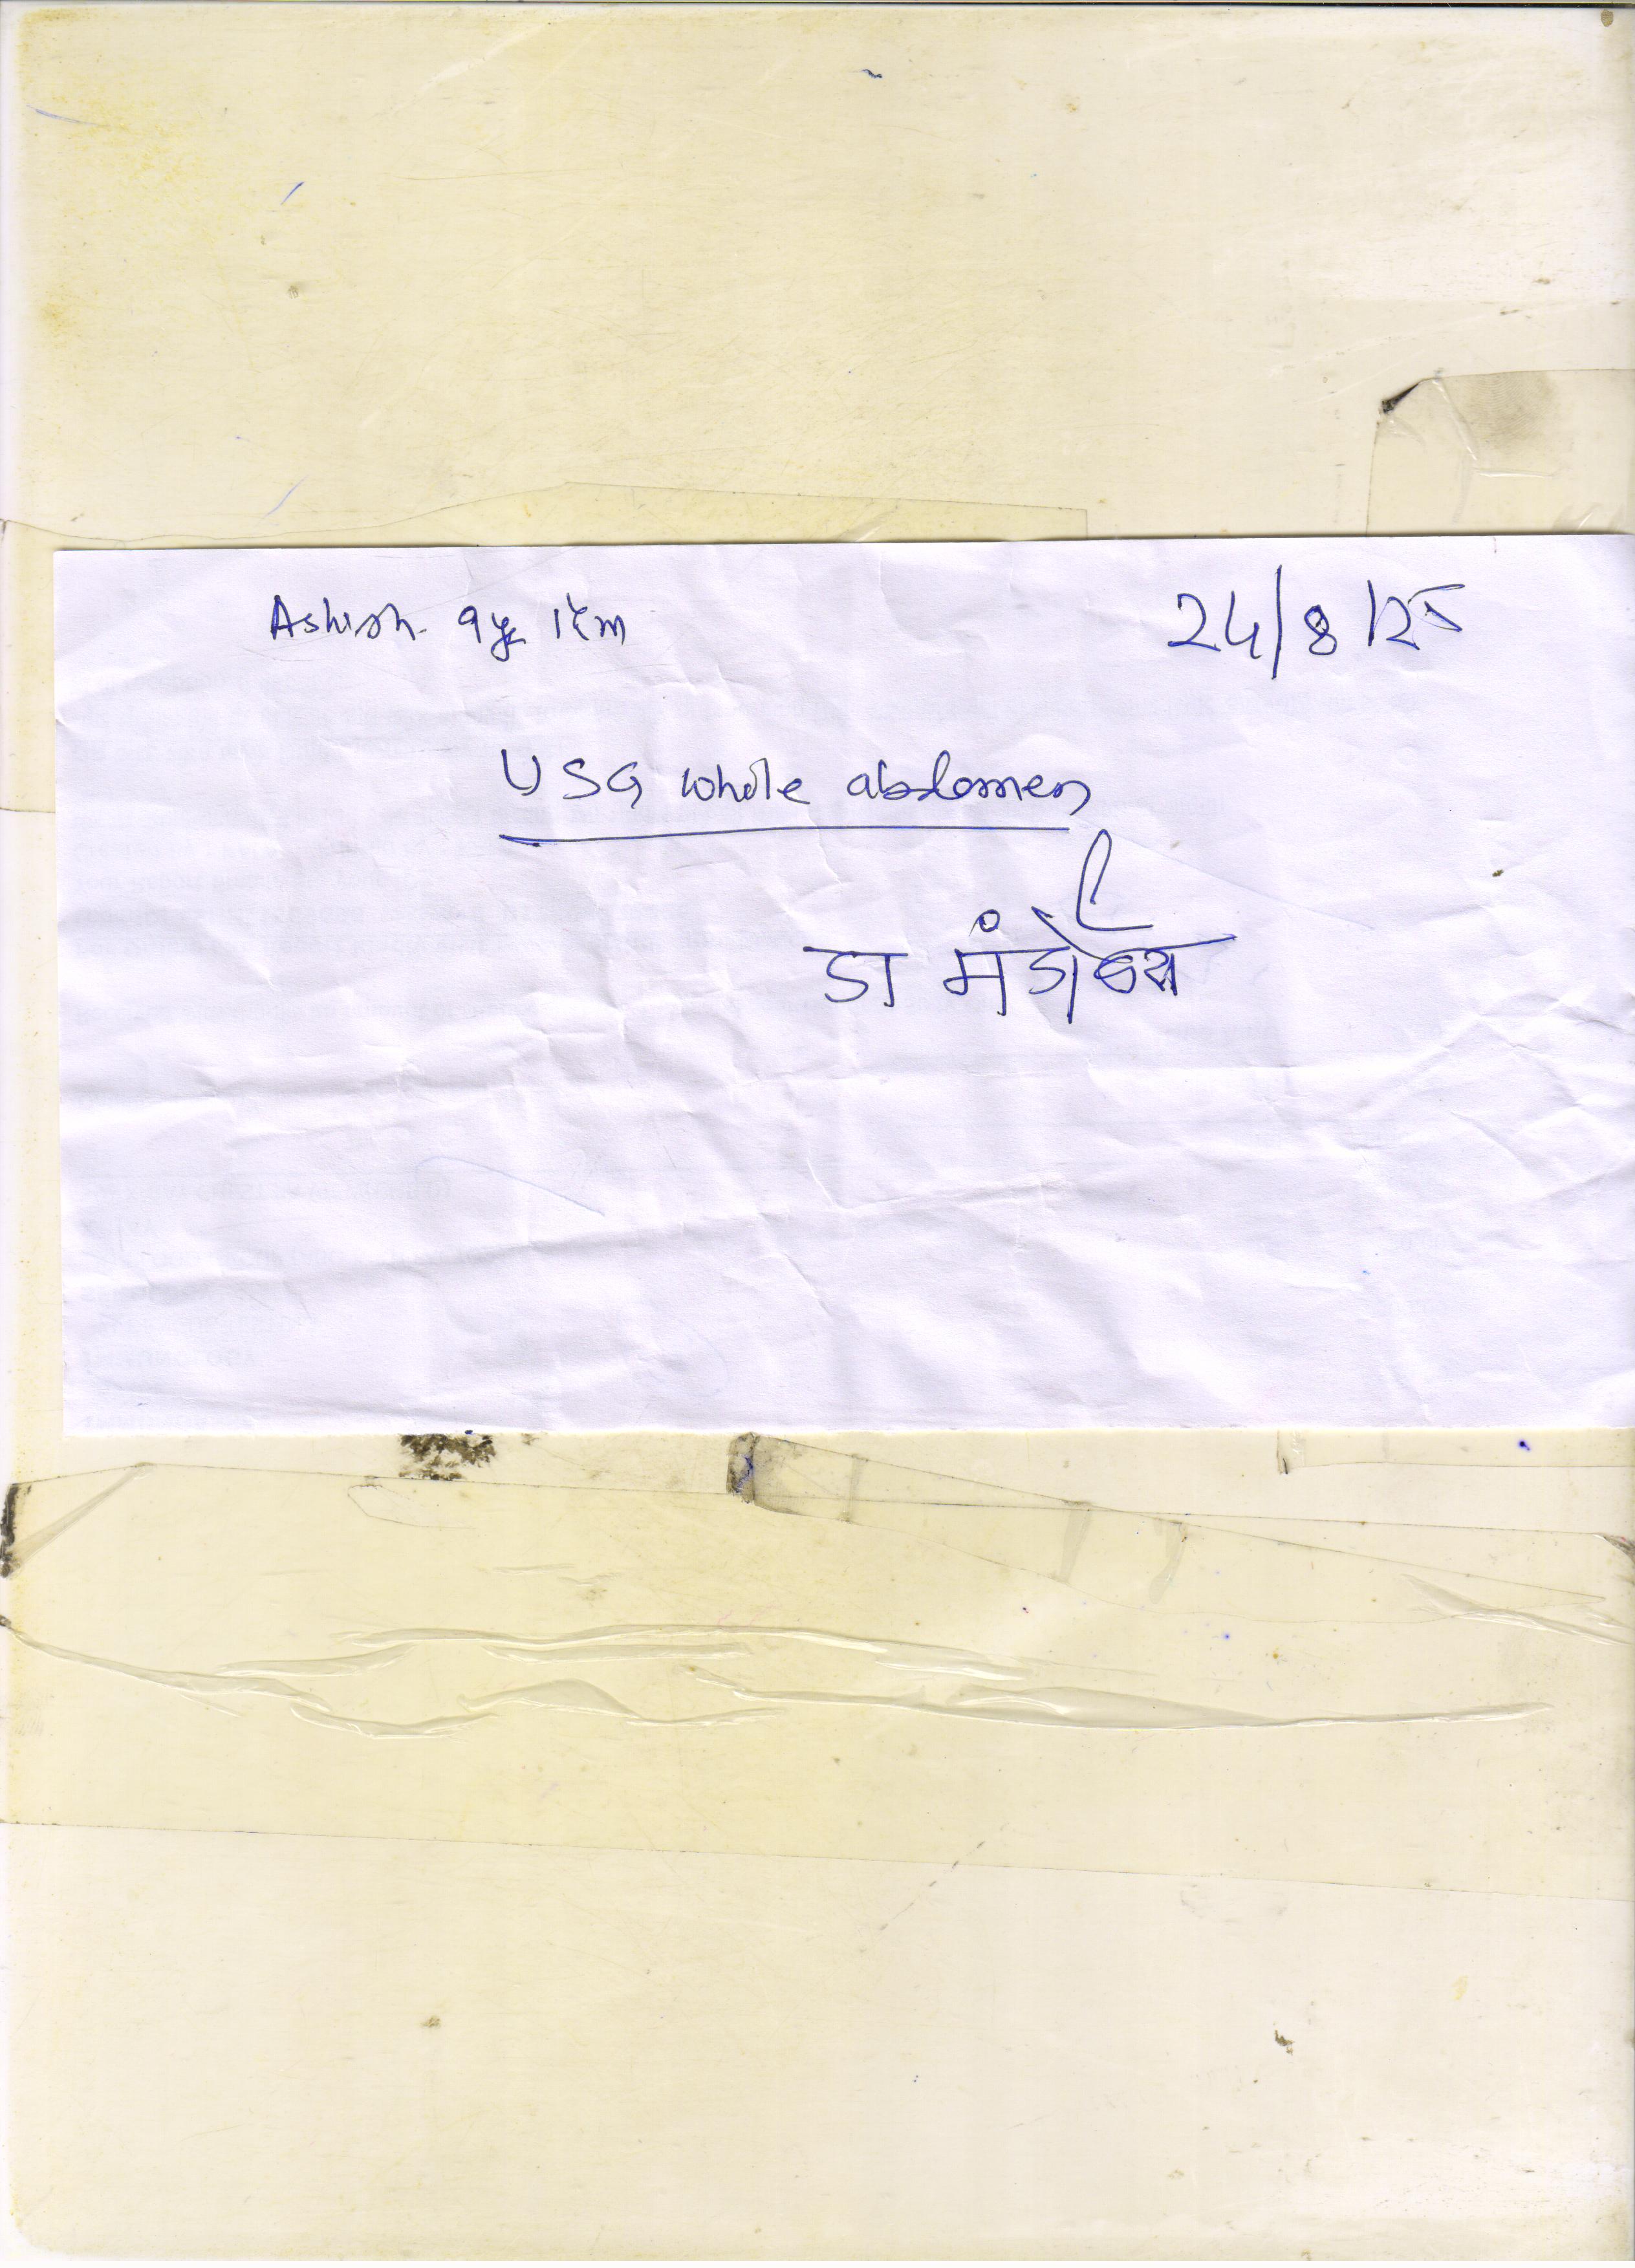 Ashish 9yr m
24/8/25
USG whole abdomen
डा